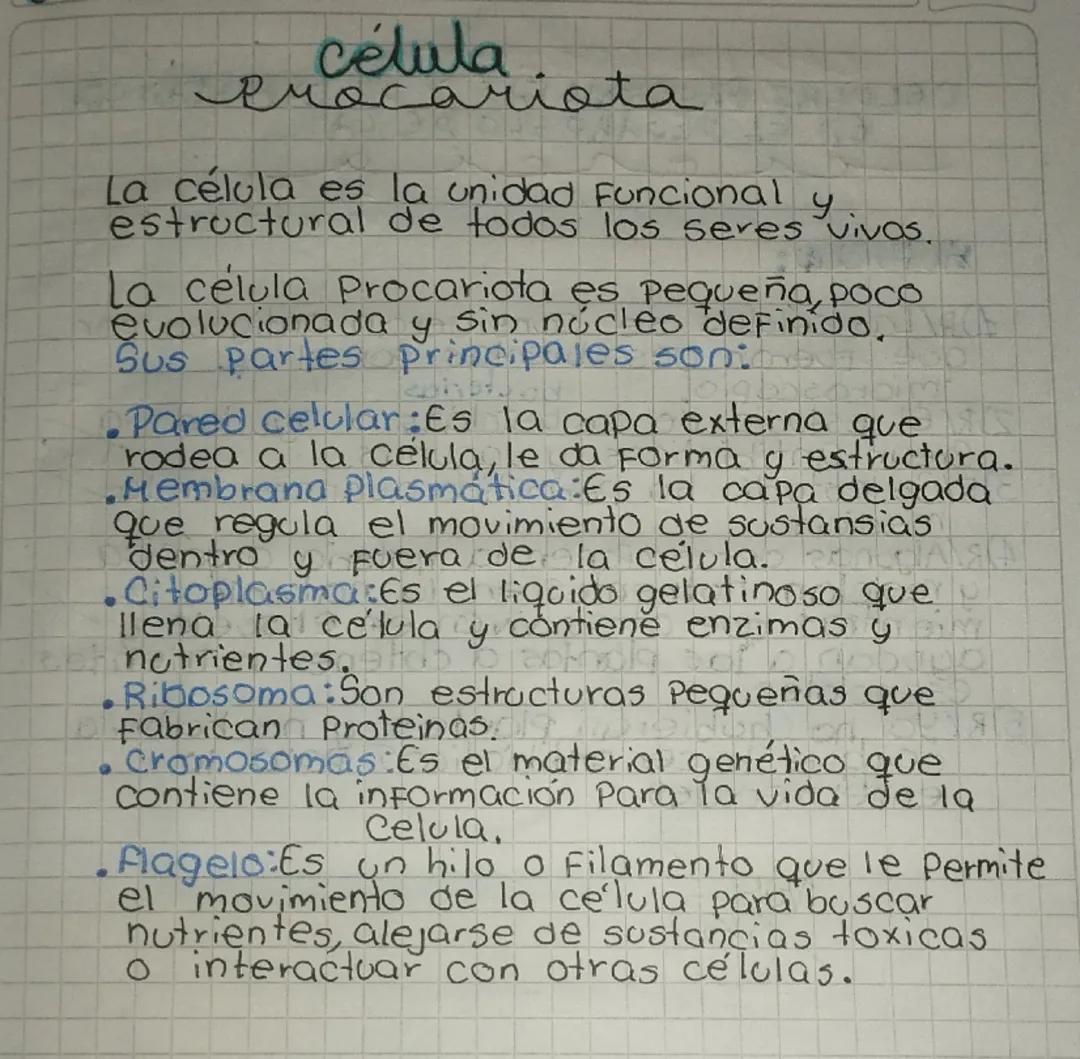 célula
Procariota
La célula es la unidad Funcional y
estructural de todos los seres vivos.
La célula Procariota es pequeña, poco
evolucionada y sin núcleo definido.
Sus partes principales son:
. Pared celular: Es la capa externa que
rodea a la célula, le da forma y estructura.
. Membrana Plasmática: Es la capa delgada
que regula el movimiento de sustansias
dentro y fuera de la célula.
. Citoplasma: Es el liquido gelatinoso que
llena la célula y contiene enzimas y
nutrientes.
. Ribosoma: Son estructuras pequeñas que
fabrican Proteinas.
. Cromosomas: Es el material genético que
contiene la información para la vida de la
celula.
. Flagelo: Es un hilo o filamento que le permite
el movimiento de la célula para buscar
nutrientes, alejarse de sustancias toxicas
o interactuar con otras células.